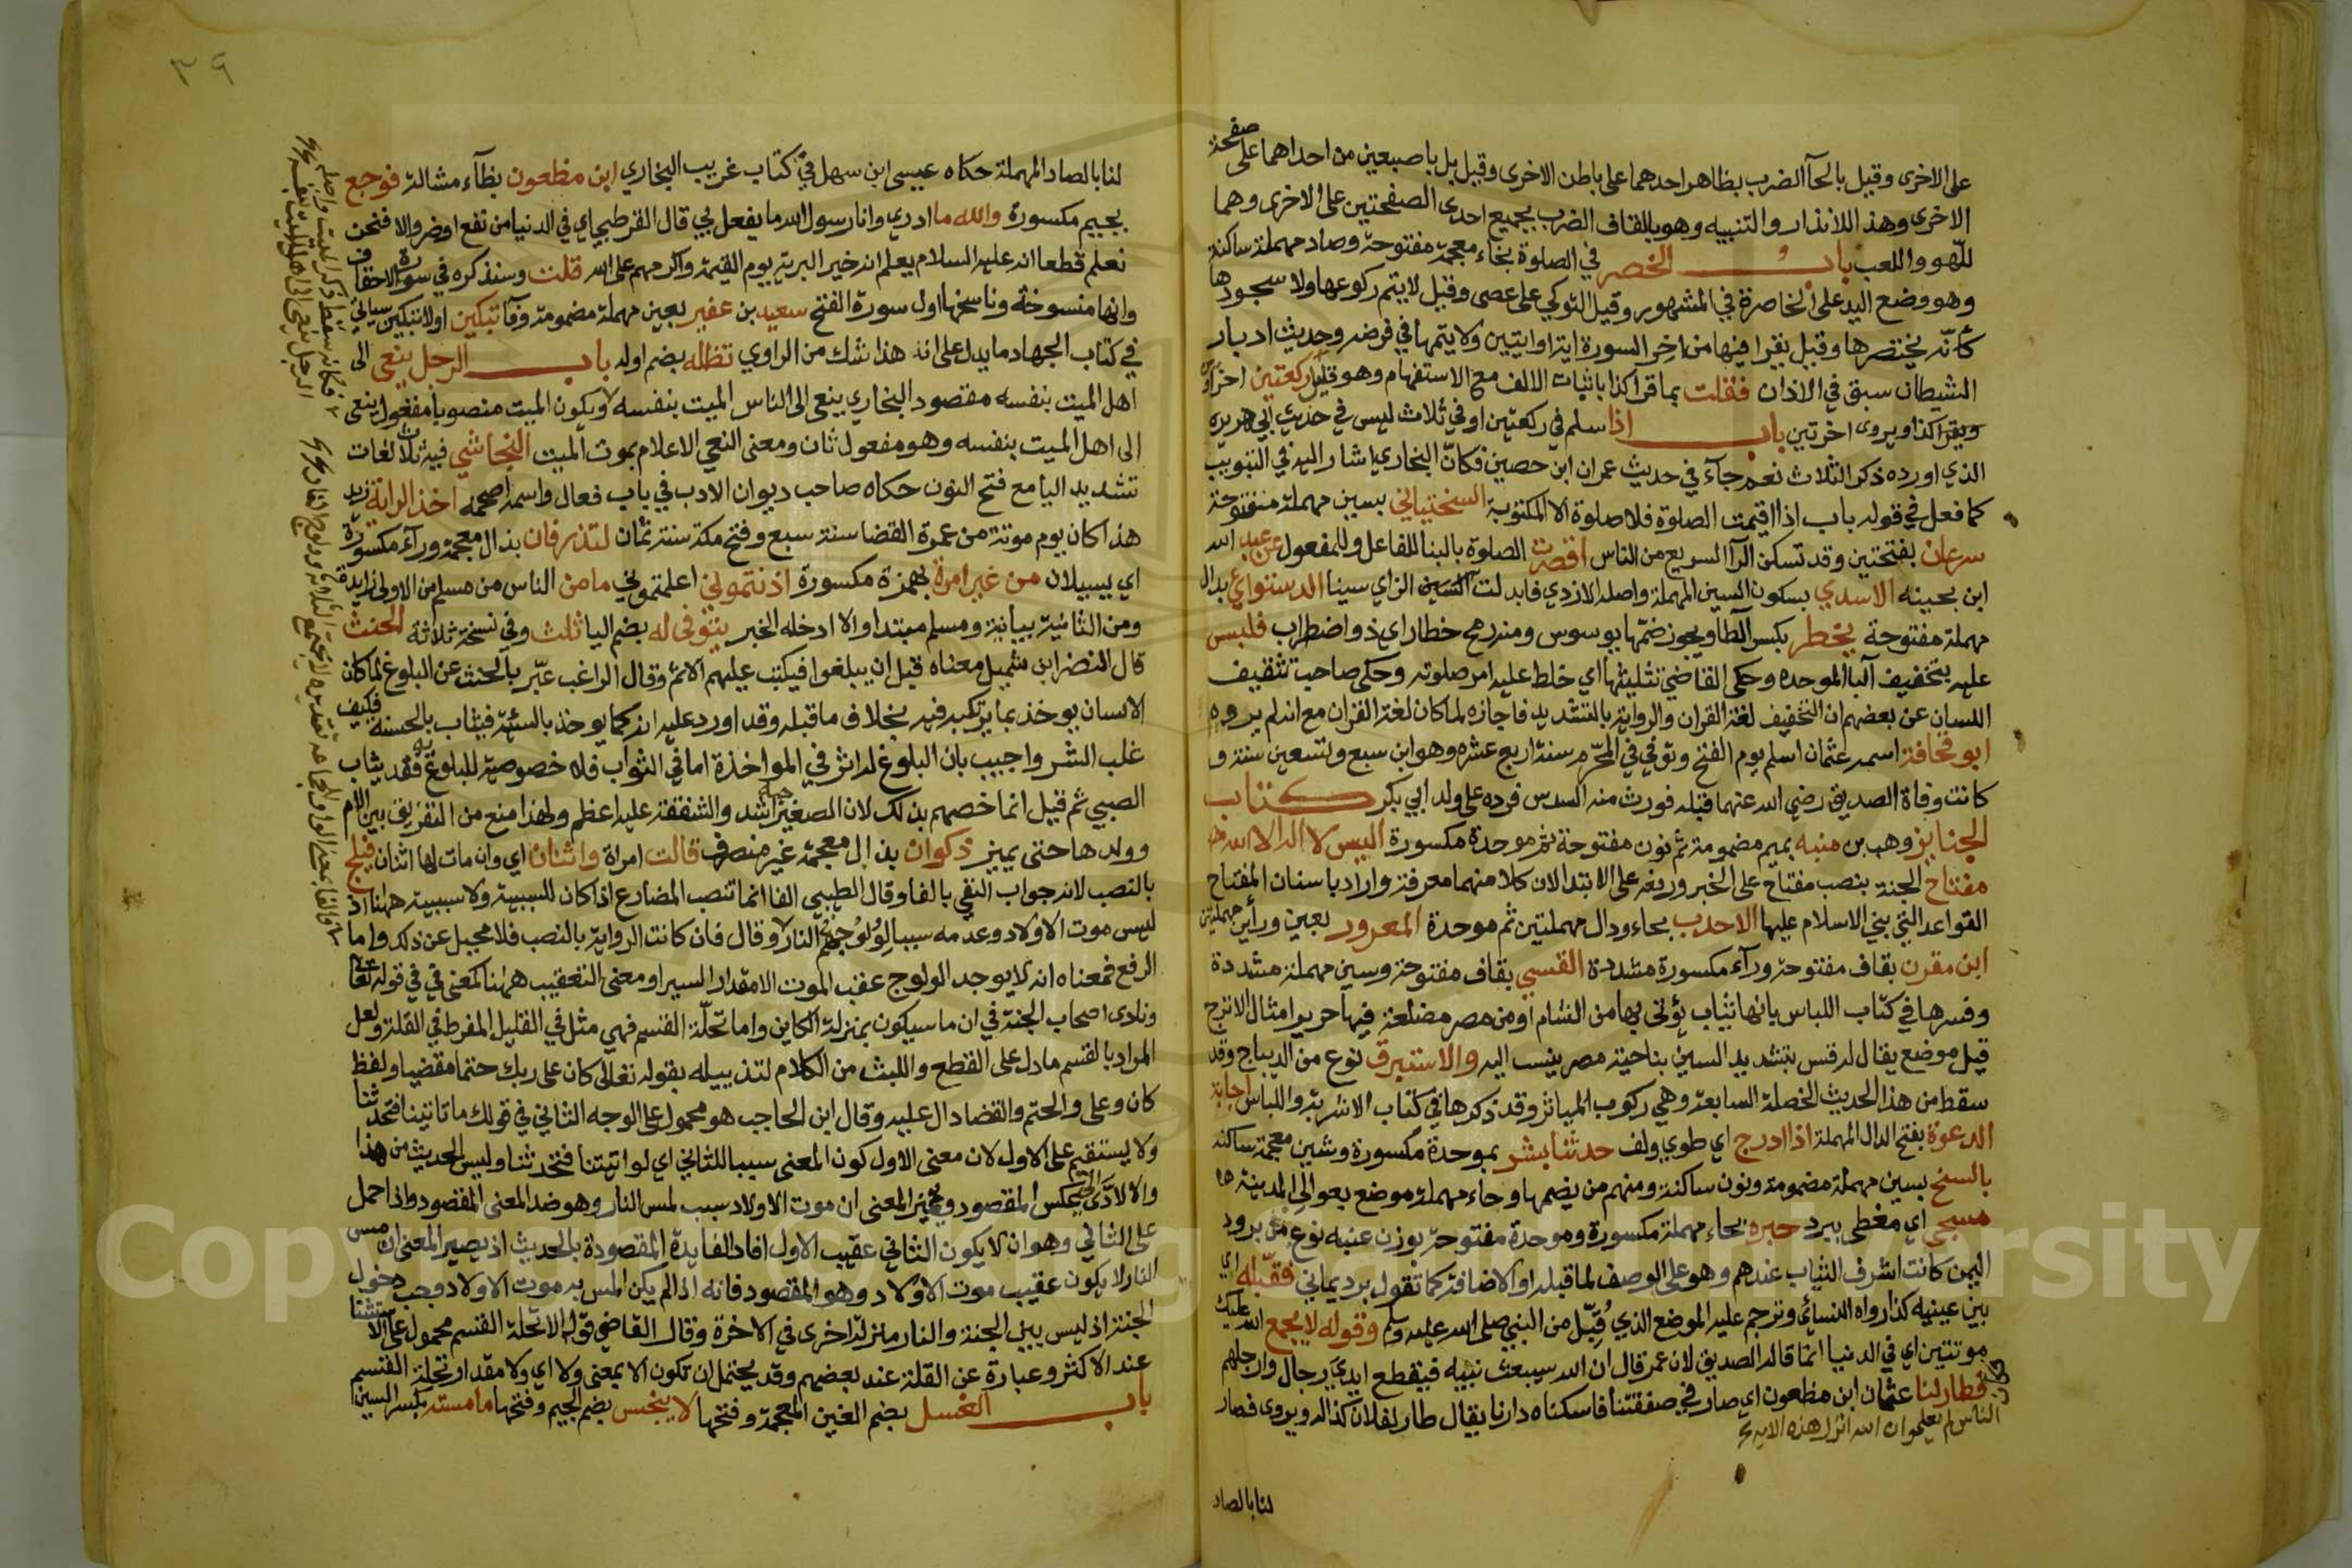 على الاخرى وقيل بالحآ الضرب بظاهر احدهما على باطن الاخرى وقيل بل باصبعين من احداهما على صفحة
الاخرى وهذ اللانذار والتنبيه وهو بالقاف الضرب بجميع احدى الصفحتين على الاخرى وهما
للّهو واللعب باب الخصر في الصلوة بخاء معجمة مفتوحة وصاد مهملة ساكنة
وهو وضع اليد على الخاصرة في المشهور وقيل التوكي على عصى وقيل لا يتم ركوعها ولا سجودها
كأنّه يختصرها وقيل يقرا فيها من اخر السورة اية او ايتيين ولا يتمها في فرضه وحديث ادبار
الشيطان سبق في الاذان فقلت بما قرا كذا باثبات الالف مع الاستفهام وهو قليل ركعتين
ويقرا كذا ويروى اخرتين باب اذا سلم في ركعتين او في ثلاث ليس في حديث ابي هريره
الذي اورده ذكر الثلاث نعم جآء في حديث عمران ابن حصين فكانّ البخاري اشار اليه في التبويب
كما فعل في قوله باب اذا اقيمت الصلوة فلا صلوة الا المكتوبة السختياني بسين مهملة مفتوحة
سرعان بفتحتين وقد تسكن الرآ السريع من الناس اقصرت الصلوة بالبنا للفاعل وللمفعول عن عبد الله
ابن بحينه الاسدي بسكون السين المهملة واصله الازدي فابدلت الزاي سينا الدستواي بدال
مهملة مفتوحة يخطر بكسر الطا ويجوز ضمّها يوسوس ومنه رمح خطار اي ذو اضطراب فلبس
عليه بتخفيف البا الموحده وحكى القاضي تثليثها اي خلط عليه امر صلوته وحكى صاحب تثقيف
اللسان عن بعضهم ان التخفيف لغة القران والرواية بالتشديد فاجازه لما كان لغة القران مع انه لم يروه
ابو قحافة اسمه عثمان اسلم يوم الفتح وتوفي في المحرّم سنة اربع عشره وهو ابن سبع وتسعين سنة و
كانت وفاة الصديق رضي الله عنهما قبله فورث منه السدس فرده على ولد ابي بكر كتاب
الجنايز وهب بن منبه بميم مضمومة ثم نون مفتوحة ثم موحدة مكسورة اليس لا اله الا الله
مفتاح الجنة بنصب مفتاح على الخبر ورفعه على الابتدا لان كلا منهما معرفة واراد باسنان المفتاح
القواعد التي بني الاسلام عليها الاحدب بحاء ودال مهملتين ثم موحدة المعرور بعين ورأين مهملتين
ابن مقرن بقاف مفتوحة ورآء مكسورة مشددة القسي بقاف مفتوحة وسين مهملة مشددة
وفسرها في كتاب اللباس بانها ثياب يؤتى بها من الشام او من مصر مضلعة فيها حرير امثال الاترج
قيل موضع يقال له قس بتشديد السين بناحية مصر ينسب اليه والاستبرق نوع من الديباج وقد
سقط من هذا الحديث الخصلة السابعة وهي ركوب المياثر وقد ذكرها في كتاب الاشربة واللباس اجابة
الدعوة بفتح الدال المهملة اذا ادرج اي طوي ولف حدثنا بشر بموحدة مكسورة وشين معجمة ساكنه
بالسنح بسين مهملة مضمومة ونون ساكنة ومنهم من يضمها وحاء مهملة موضع بعوالي المدينة
مسجى اي مغطى ببرد حبره بحاء مهملة مكسورة وموحدة مفتوحة بوزن عنبه نوع من برود
اليمن كانت اشرف الثياب عندهم وهو على الوصف لما قبله او الاضافة كما تقول برد يماني فقبّله اي
بين عينيه كذا رواه النسائي وترجم عليه الموضع الذي قُبِّل من النبي صلى الله عليه وسلم وقوله لا يجمع الله عليك
موتتين اي في الدنيا انما قاله الصديق لان عمر قال ان الله سيبعث نبيه فيقطع ايدي رجال وارجلهم
فطار لنا عثمان ابن مظعون اي صار في صفقتنا فاسكناه دارنا يقال طار لفلان كذا له ويروى فصار
الناس لم يعلموا ان الله انزل هذه الاية
لنا بالصاد
٣٩
لنا بالصاد المهملة حكاه عيسى ابن سهل في كتاب غريب البخاري ابن مظعون بظآء مشالة فوجع
بجيم مكسورة والله ما ادري وانا رسول الله ما يفعل بي قال القرطبي اي في الدنيا من نفع او ضر والا فنحن
نعلم قطعا انه عليه السلام يعلم انه خير البرية يوم القيمة واكرمهم على الله قلت وسنذكره في سورة الاحقاف
وانها منسوخة وناسخها اول سورة الفتح سعيد بن عفير بعين مهملة مضمومة وفآ تبكين او لا تبكين سياتي
في كتاب الجهاد ما يدل على انه هذا شك من الراوي تظله بضم اوله باب الرجل ينعى الى
اهل الميت بنفسه مقصود البخاري ينعى الى الناس الميت بنفسه ويكون الميت منصوبا مفعول ينعى
الى اهل الميت بنفسه وهو مفعول ثان ومعنى النعي الاعلام بموت الميت النجاشي فيه ثلاث لغات
تشديد اليا مع فتح النون حكاه صاحب ديوان الادب في باب فعال واسمه اصحمه اخذ الراية زيد
هذا كان يوم موتة من عمرة القضا سنة سبع وفتح مكة سنة ثمان لتذرفان بذال معجمة ورآء مكسورة
اي يسيلان من غير امرة بهمزة مكسورة اذنتموني اعلمتموني ما من الناس من مسلم من الاولى زايدة
ومن الثانية بيانية ومسلم مبتدا والا ادخله الخبر يتوفى له بضم اليا ثلث وفي نسخة ثلاثة الحنث
قال النضر ابن شميل معناه قبل ان يبلغوا فيكتب عليهم الاثم وقال الراغب عبّر بالحنث عن البلوغ لما كان
الانسان يوخذ بما يرتكبه فيه بخلاف ما قبله وقد اورد عليه انه كما يوخذ بالسئية فيثاب بالحسنه فكيف
غلب الشر واجيب بان البلوغ له اثر في المواخذة اما في الثواب فلا خصوصية للبلوغ به فقد يثاب
الصبي ثم قيل انما خصهم بذلك لان الصغير حبه اشد والشفقة عليه اعظم ولهذا منع من التفريق بين الام
وولدها حتى يميز ذكوان بذال معجمة غير منصرف قالت امراة واثنان اي وان مات لها اثنان فيلج
بالنصب لانه جواب النفي بالفا وقال الطيبي الفا انما تنصب المضارع اذا كان للسببية ولا سببية ههنا اذ
ليس موت الاولاد وعدمه سببا لولوج النار وقال فان كانت الرواية بالنصب فلا محيل عن ذلك واما
الرفع فمعناه انه لا يوجد الولوج عقب الموت الا مقدار السير او معنى التعقيب ههنا كمعنى في في قوله تعالى
ونادى اصحاب الجنة في ان ما سيكون بمنزلة الكاين واما تحلّة القسم فهي مثل في القليل المفرط في القلة ولعل
المراد بالقسم ما دل على القطع والبث من الكلام لتذييله بقوله تعالى كان على ربك حتما مقضيا ولفظ
كان وعلى والحتم والقضا دال عليه وقال ابن الحاجب هو محمول على الوجه الثاني في قولك ما تاتينا فتحدثنا
ولا يستقيم على الاول لان معنى الاول كون المعنى سببا للثاني اي لو اتيتنا فتحدثنا وليس الحديث من هذا
والا لادّى الى عكس المقصود ويصير المعنى ان موت الاولاد سبب لمس النار وهو ضد المعنى المقصود واذا حمل
على الثاني وهو ان لا يكون الثاني عقيب الاول افاد الفايدة المقصودة بالحديث اذ يصير المعنى ان مس
النار لا يكون عقيب موت الاولاد وهو المقصود فانه اذا لم يكن المس بد موت الاولاد وجب دخول
الجنة اذ ليس بين الجنة والنار منزلة اخرى في الاخرة وقال القاضي قوله الا تحلة القسم محمول على الاستثنا
عند الاكثر وعبارة عن القلة عند بعضهم وقد يحتمل ان تكون الا بمعنى ولا اي ولا مقدار تحلة القسم
باب الغسل بضم الغين المعجمة وفتحها لا ينجس بضم الجيم وفتحها ما مسته بكسر السين